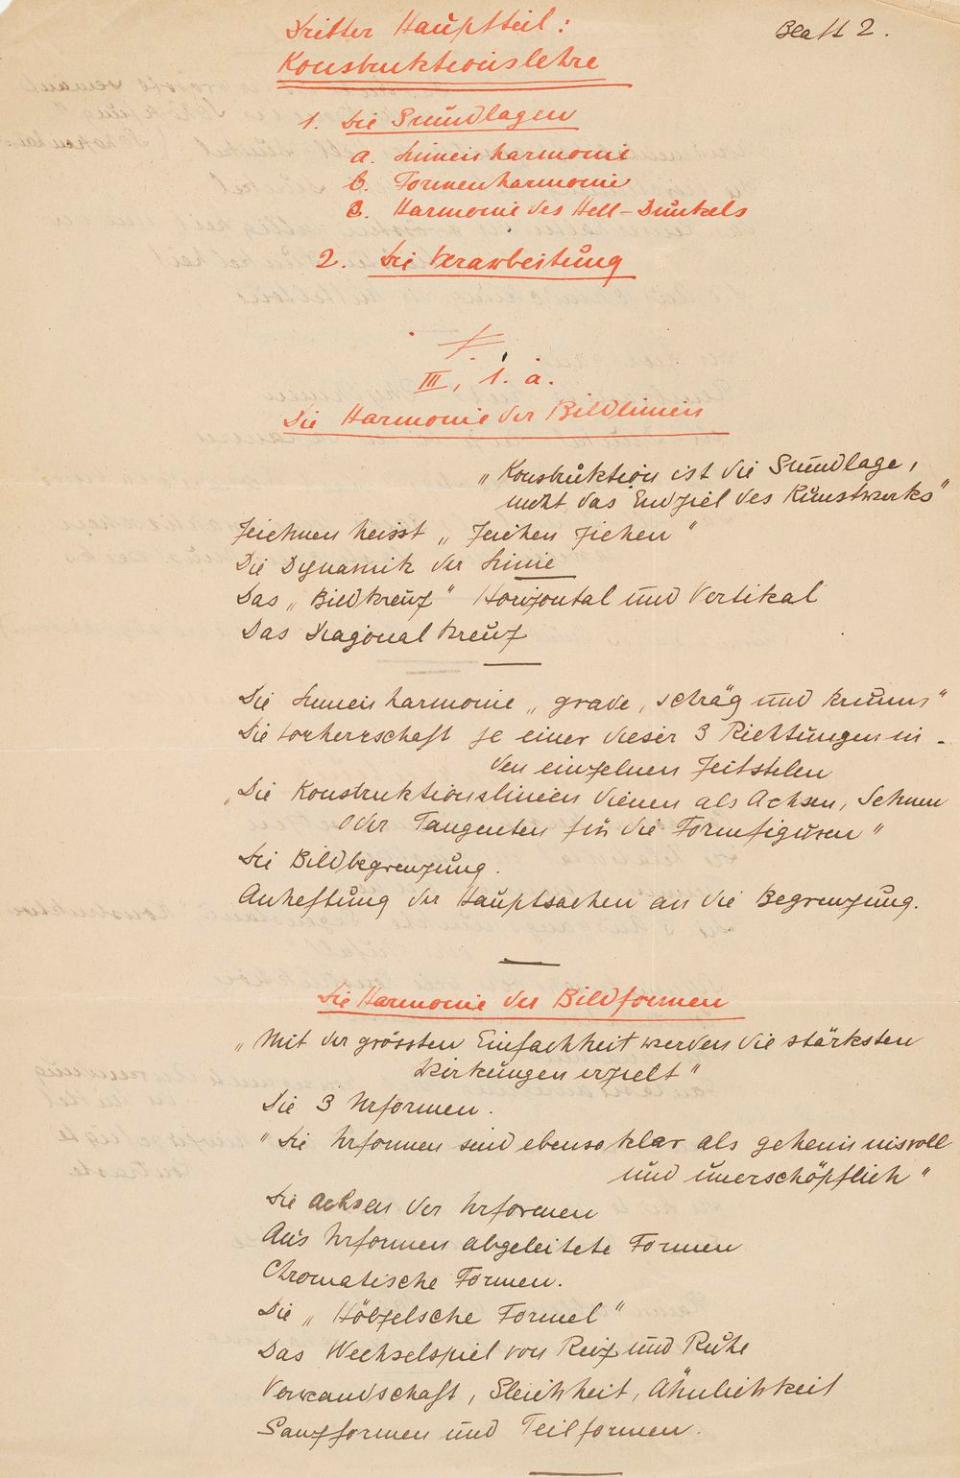 Blatt 2.
Dritter Hauptteil:
Konstruktionslehre
1. Die Grundlagen
a. Linienharmonie
b. Formenharmonie
c. Harmonie des Hell-Dunkels
2. Die Verarbeitung
III, 1. a.
Die Harmonie der Bildlinien
„Konstruktion ist die Grundlage,
nicht das Endziel des Kunstwerks"
Zeichnen heisst „Zeichen ziehen"
Die Dynamik der Linie
Das „Bildkreuz" Horizontal und Vertikal
Das Diagonalkreuz
Die Linienharmonie „grade, schräg und krumm"
Die Vorherrschaft je einer dieser 3 Richtungen in
den einzelnen Zeitstilen
„Die Konstruktionslinien dienen als Achsen, Sehnen
oder Tangenten für die Formfiguren"
Die Bildbegrenzung.
Anheftung der Hauptsachen an die Begrenzung.
Die Harmonie der Bildformen
„Mit der grössten Einfachheit werden die stärksten
Wirkungen erzielt"
Die 3 Urformen.
"Die Urformen sind ebenso klar als geheimnisvoll
und unerschöpflich"
Die Achsen der Urformen
Aus Urformen abgeleitete Formen
Chromatische Formen.
Die „Hölzelsche Formel"
Das Wechselspiel von Reiz und Ruhe
Verwandschaft, Gleichheit, Ähnlichkeit
Ganzformen und Teilformen.